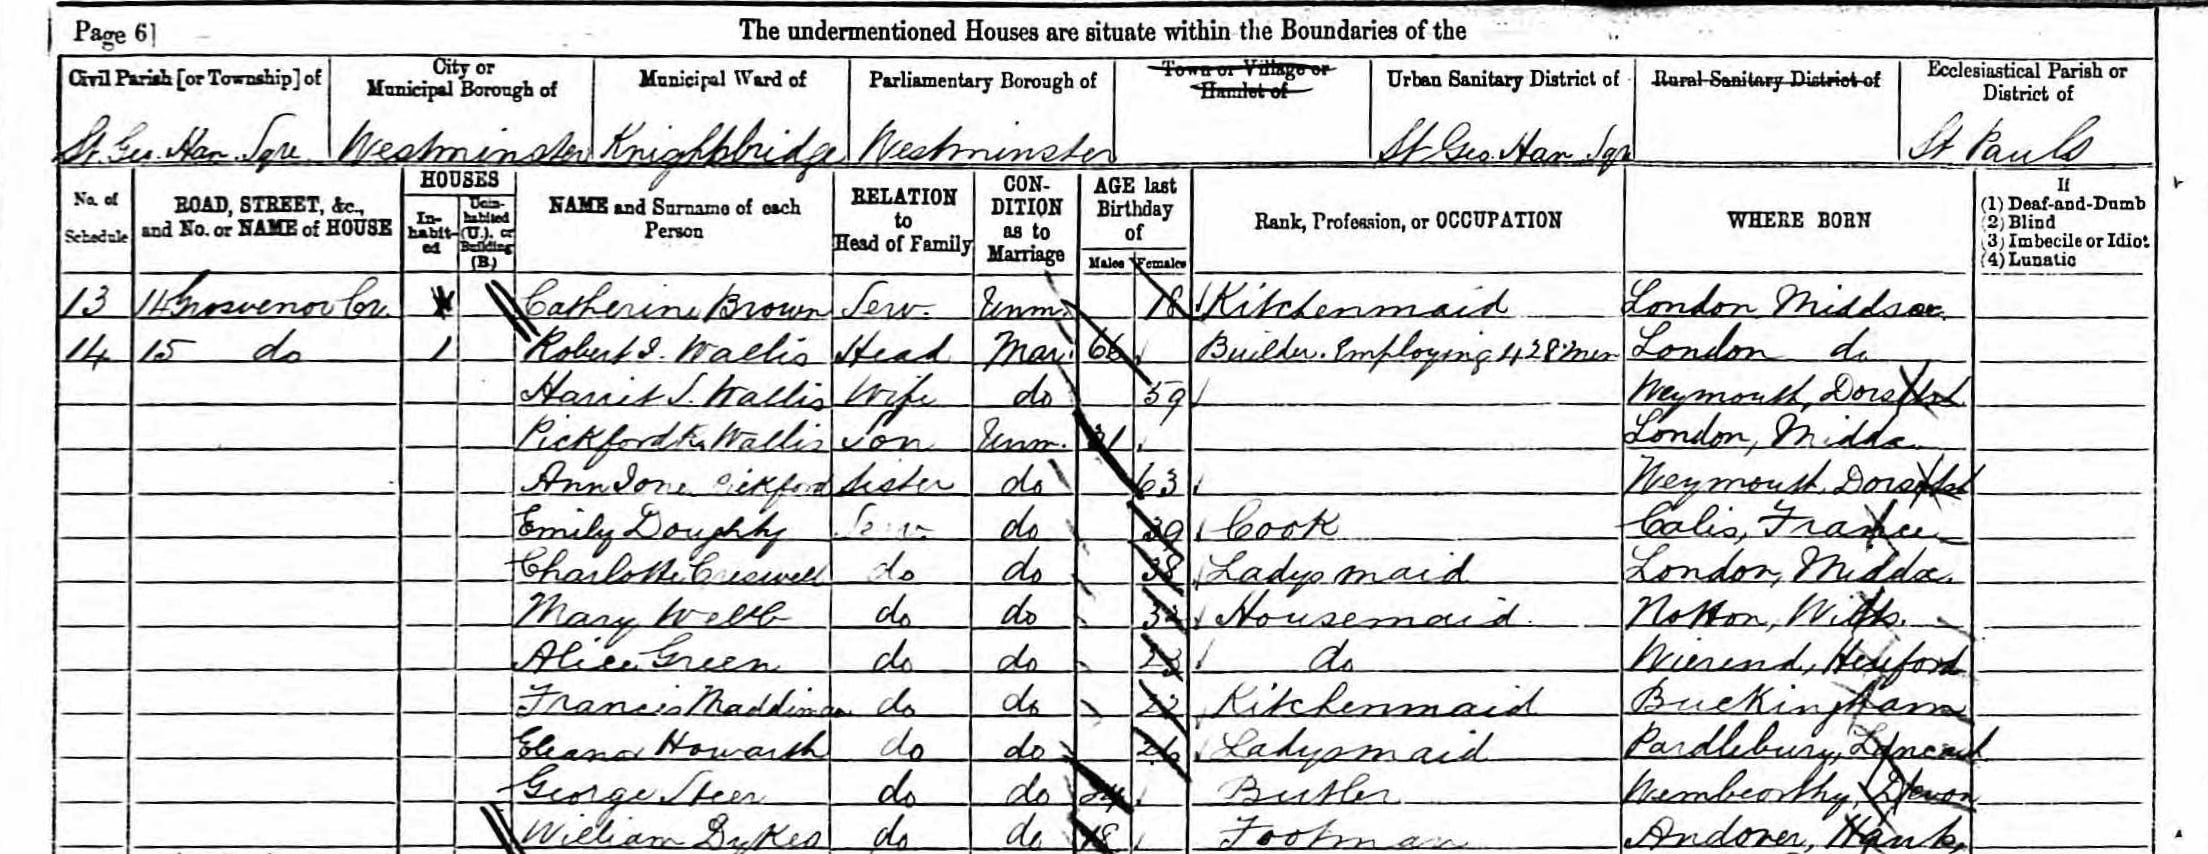 Page 6] The undermentioned Houses are situate within the Boundaries of the
Civil Parish [or Township] of City or Municipal Borough of Municipal Ward of Parliamentary Borough of Town or Village or Hamlet of Urban Sanitary District of Rural Sanitary District of Ecclesiastical Parish or District of
St. Geo. Han. Sqre Westminster Knightsbridge Westminster St Geo. Han Sqr St Pauls
No. of Schedule ROAD, STREET, &c., and No. or NAME of HOUSE HOUSES In-habit-ed Unin-habited (U.), or Building (B.) NAME and Surname of each Person RELATION to Head of Family CON-DITION as to Marriage AGE last Birthday of Males Females Rank, Profession, or OCCUPATION WHERE BORN If (1) Deaf-and-Dumb (2) Blind (3) Imbecile or Idiot (4) Lunatic
13 14 Grosvenor Cr. Catherine Brown Serv. Unm. 18 Kitchenmaid London Middsex
14 15 do 1 Robert I. Wallis Head Mar. 66 Builder. Employing 428 men London do
Harriet S. Wallis Wife do 59 Weymouth, Dorset
Pickford Wallis Son Unm. 31 London, Middx.
Ann Pickford Sister do 63 Weymouth, Dorset
Emily Doughty Serv. do 39 Cook Calis, France
Charlotte Creswell do do 38 Ladysmaid London, Middx.
Mary Webb do do 32 Housemaid Notton, Wilts.
Alice Green do do 23 do Hereford
Francis do do 22 Kitchenmaid Buckingham
Eleanor Howarth do do 26 Ladysmaid Pardlebury,
George Steer do do 24 Butler Wembworthy, Devon
William Dykes do do 18 Footman Andover, Hants,